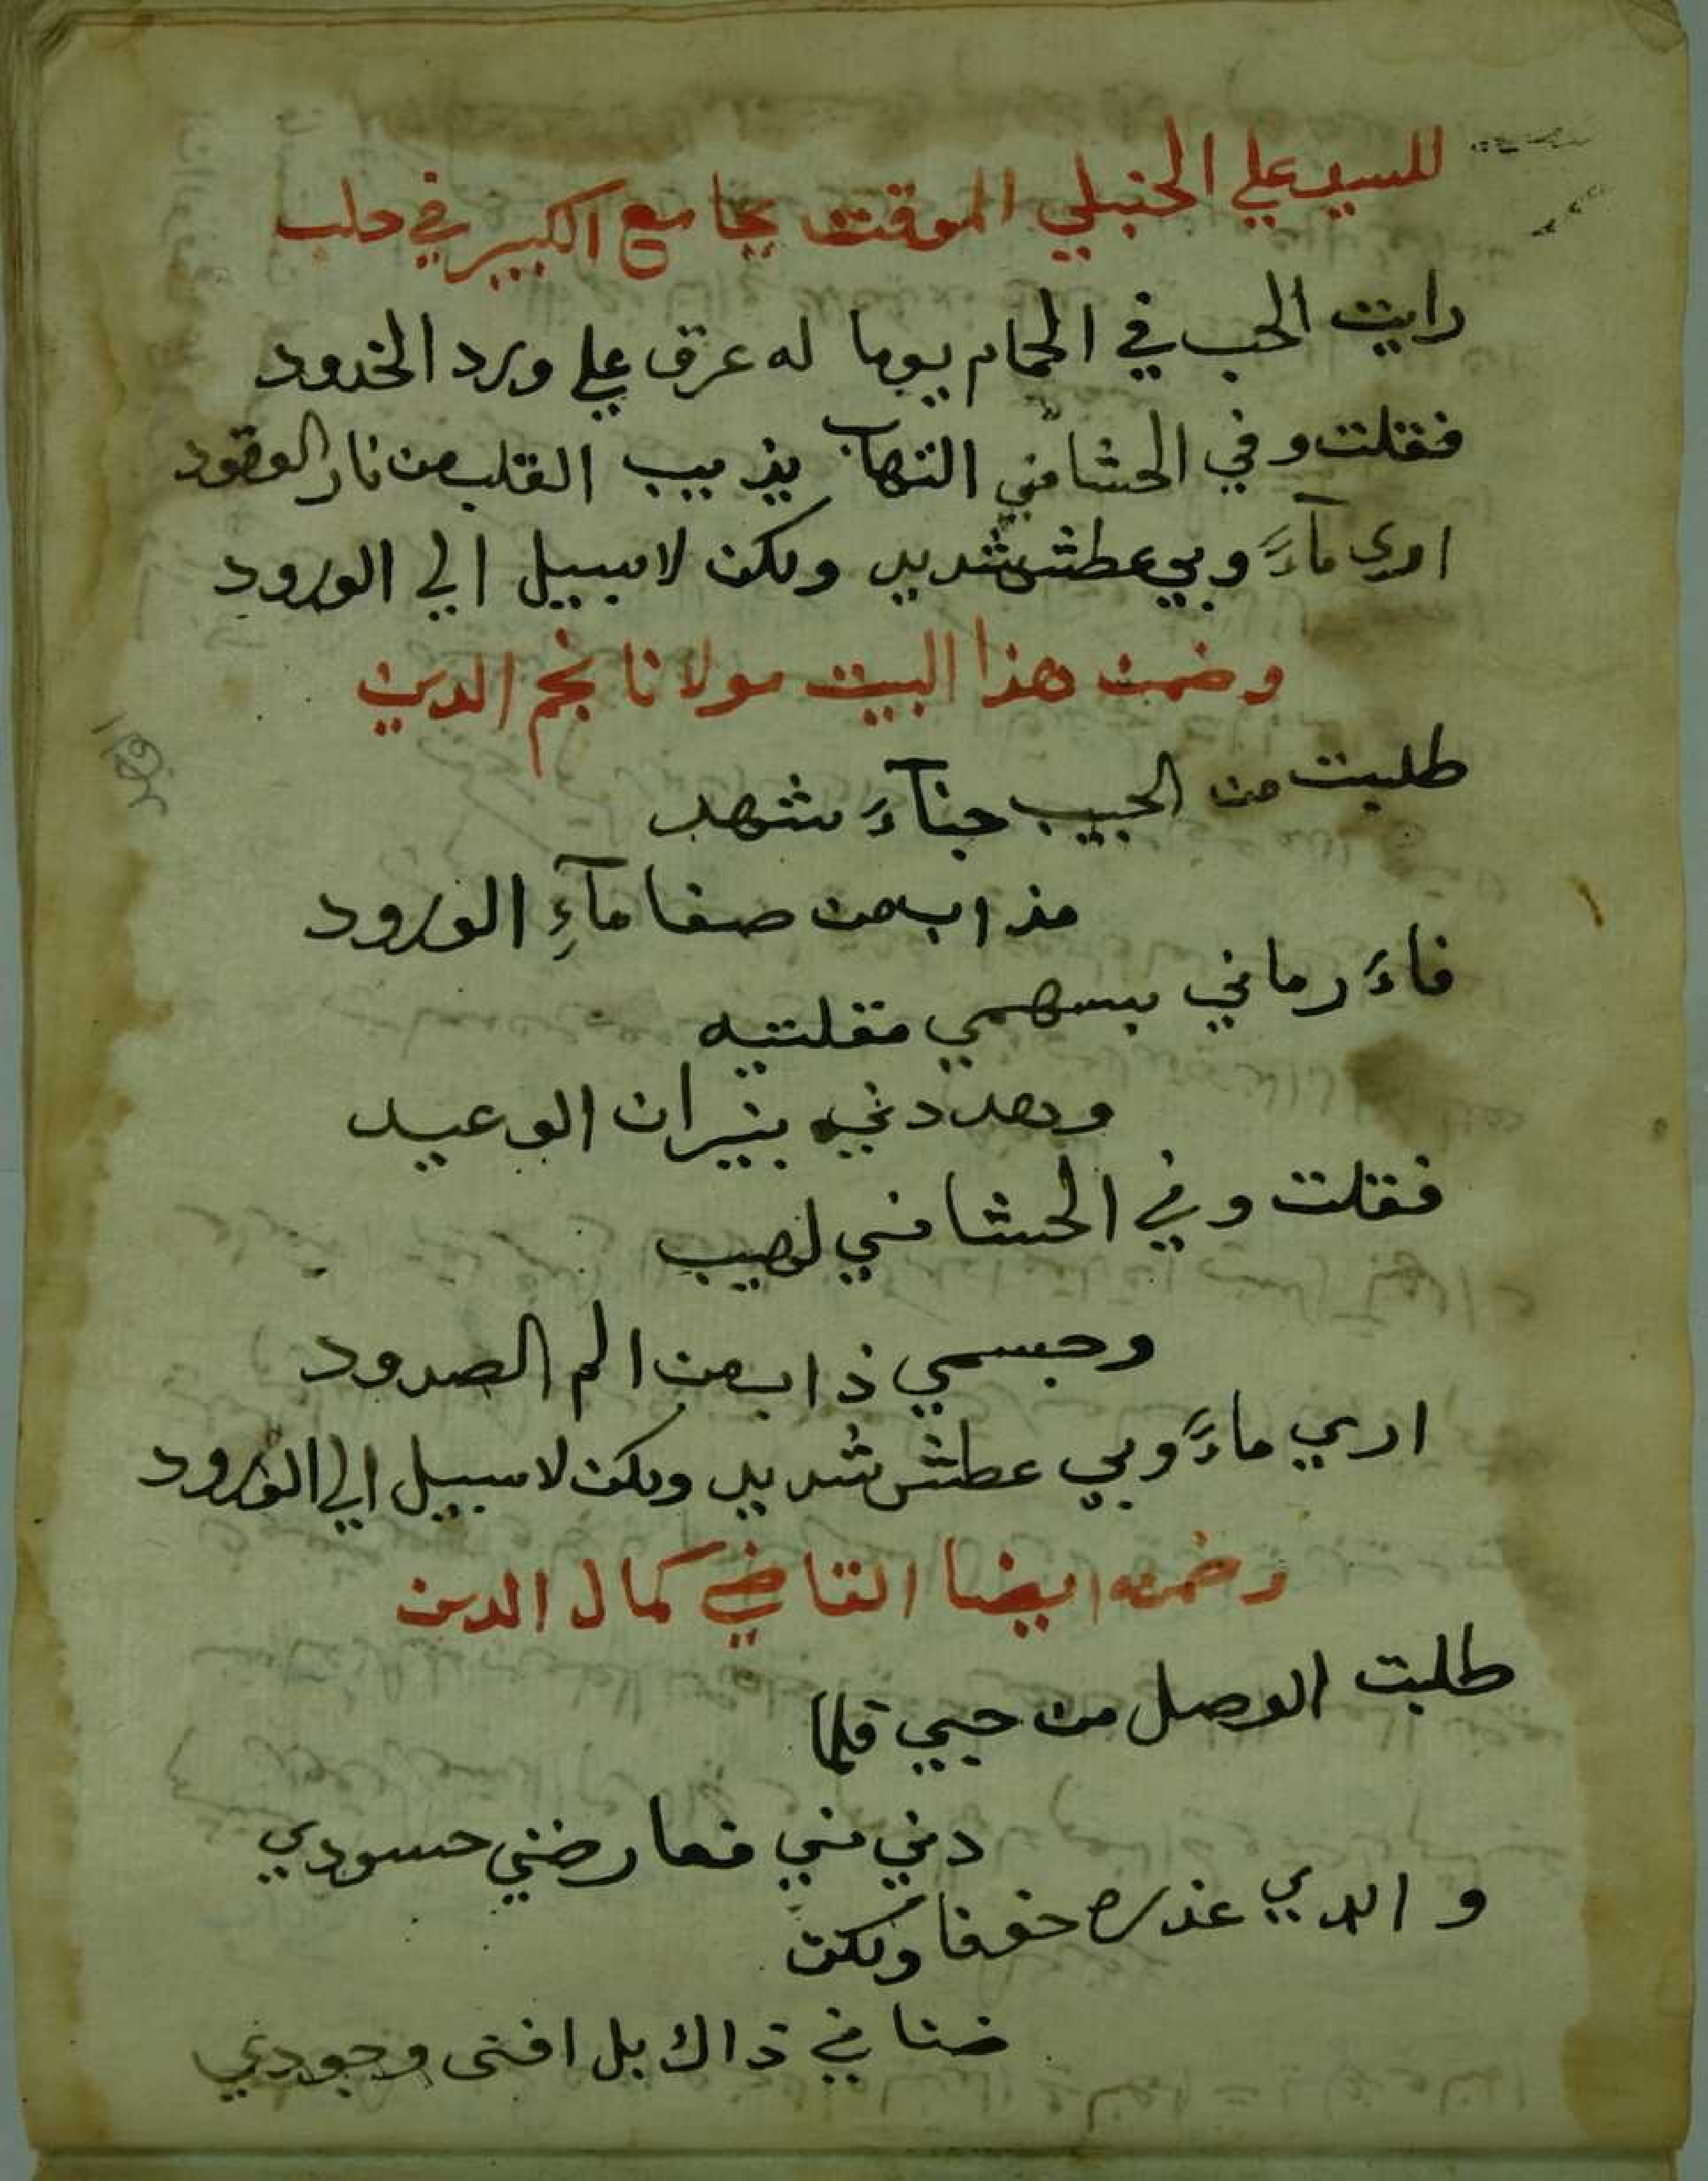 للسيد علي الحنبلي الموقت بجامع الكبير في حلب
رايت الحب في الحمام يوما له عرق علي ورد الخدود
فقلت وفي الحشا مني التهاب يذيب القلب من نار الوقود
اري مآءً وبي عطش شديد ولكن لا سبيل الي الورود
وضمن هذا البيت مولانا نجم الدين
طلبت من الحبيب جنآءَ شهد
مذاب من صفا مآءِ الورود
فاءَ رماني بسهمي مقلتيه
وهددني بنيران الوعيد
فقلت وفي الحشا مني لهيب
وجسمي ذاب من الم الصدود
اري ماءً وبي عطش شديد ولكن لا سبيل الي الورود
وضمنه ايضا القاضي كمال الدين
طلبت الوصل من حبي فلما
دني مني فعارضني حسودي
و ابدي عذره خوفا ولكن
ضنا في ذاك بل افنى وجودي